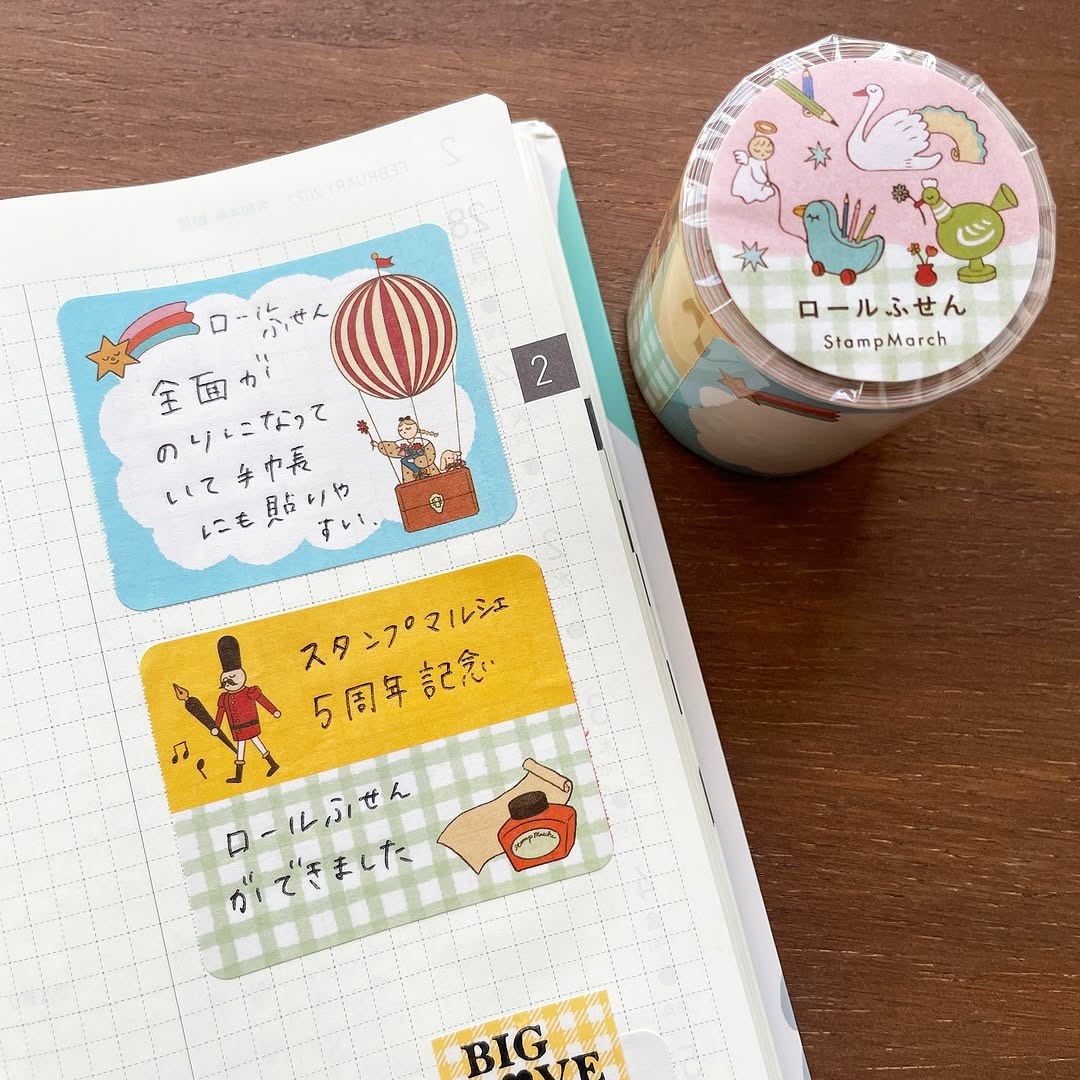 ロールふせん
全面が
のりになって
いて手帳
にも貼りや
すい.
スタンプマルシェ
5周年記念
ロールふせん
ができました
StampMarche
ロールふせん
StampMarch
2
BIG
LOVE
FEBRUARY
28
2